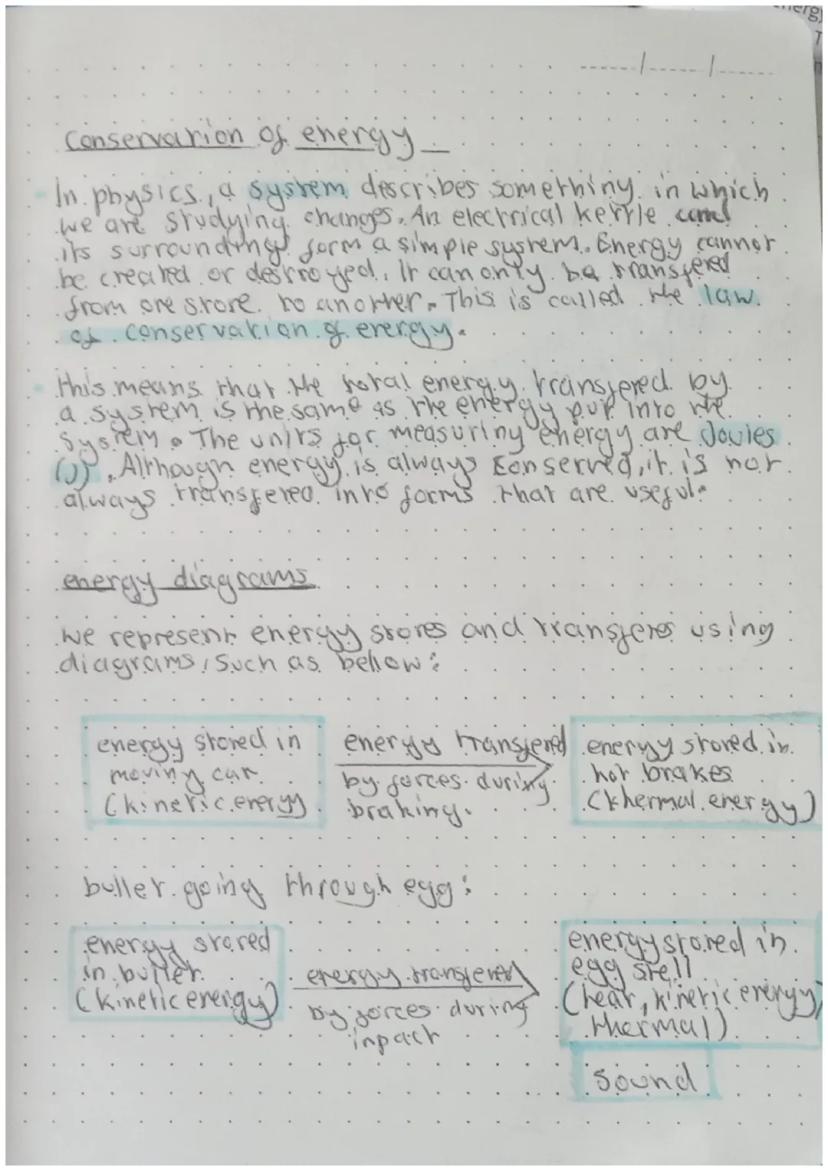 Conservation of energy
In physics, a system describes something in which
we are studying changes. An electrical kettle and
its surroundings form a simple system. Energy cannot
be created or destroyed. It can only be transfered
from one store to another. This is called the law
of conservation of energy.
this means that the total energy transfered by
a system is the same as the energy put into the
system. The units for measuring energy are Joules
(J). Although energy is always conserved, it is not
always transfered into forms that are useful.
energy diagrams
we represent energy stores and transferes using
diagrams, such as bellow:
energy stored in
moving car
(kinetic energy)
energy transfered
by forces during
braking.
energy stored in
hot brakes
(thermal energy)
bullet going through egg:
energy stored
in bullet
(kinetic energy)
energy transfered
by forces during
inpact
energy stored in
egg shell
(heat, kinetic energy,
thermal)
sound